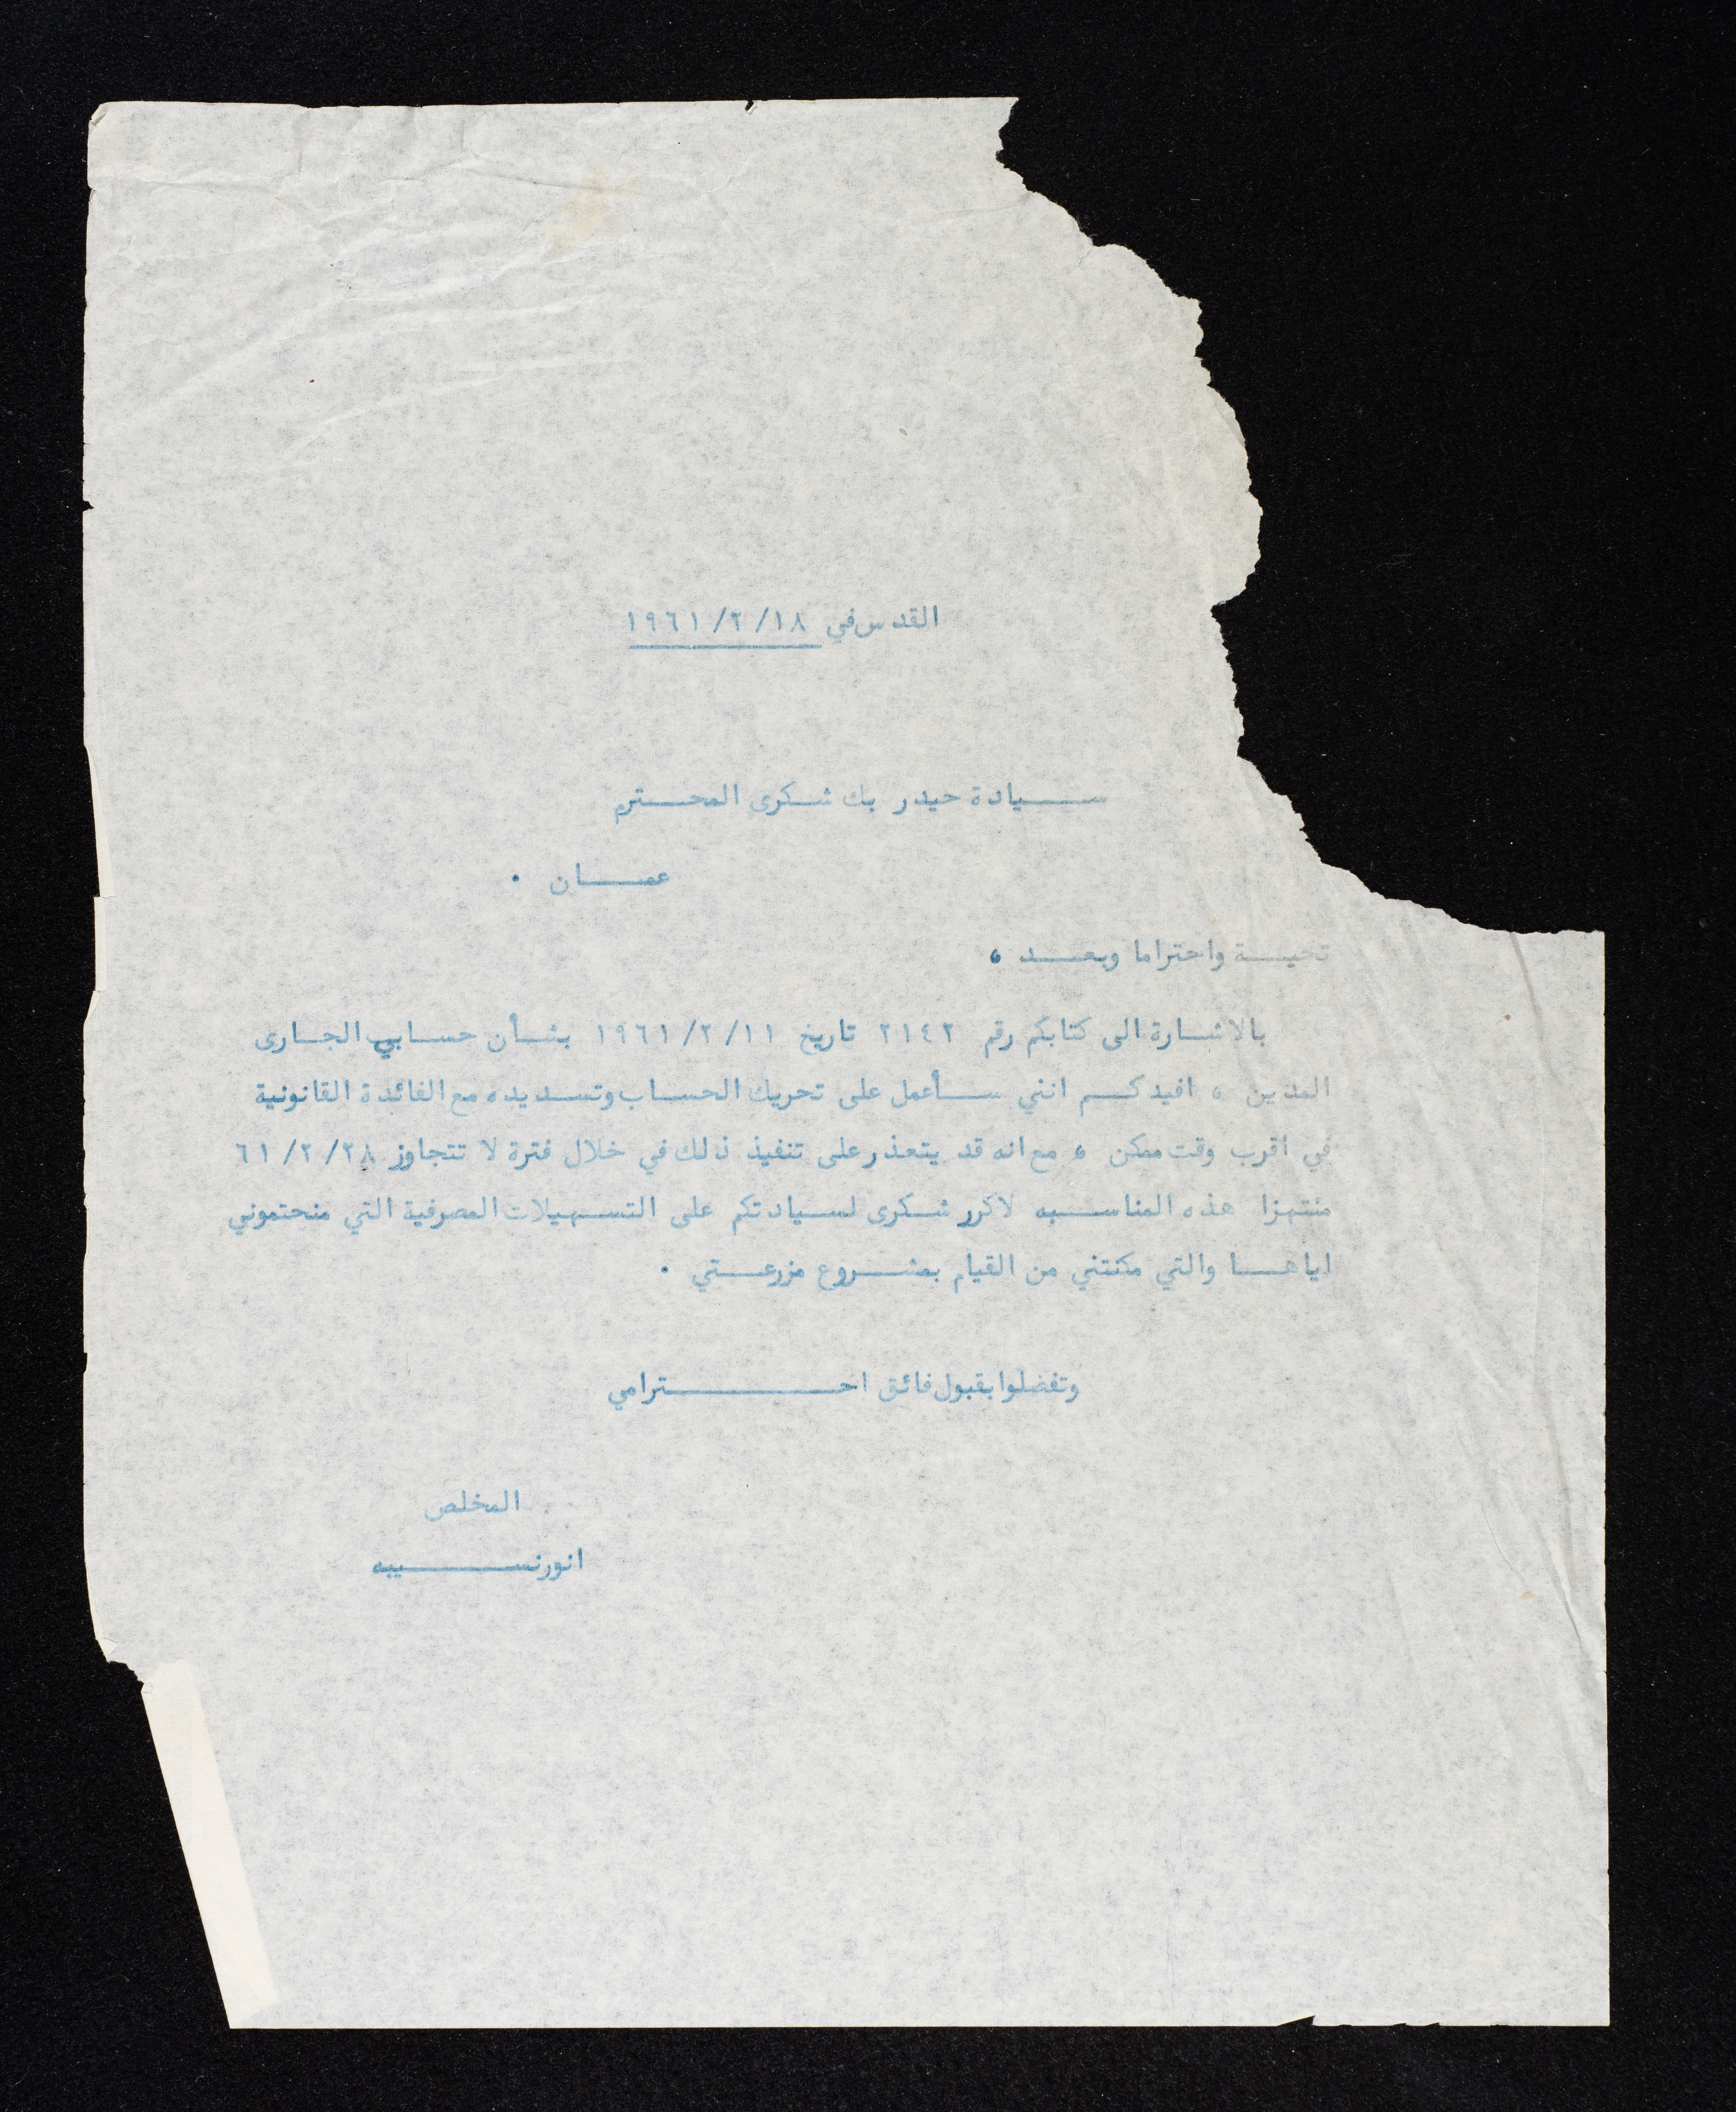 القدس في ١٩٦١/٢/١٨
سيادة حيدر بك شكرى المحترم
عمان .
تحية واحتراما وبعد ،
بالاشارة الى كتابكم رقم ٢١٤٢ تاريخ ١٩٦١/٢/١١ بشأن حسابي الجارى
المدين ، افيدكم انني سأعمل على تحريك الحساب وتسديده مع الفائدة القانونية
في اقرب وقت ممكن ، مع انه قد يتعذر على تنفيذ ذلك في خلال فترة لا تتجاوز ٦١/٢/٢٨
منتهزا هذه المناسبه لاكرر شكرى لسيادتكم على التسهيلات المصرفية التي منحتموني
اياها والتي مكنتني من القيام بمشروع مزرعتي .
وتفضلوا بقبول فائق احترامي
المخلص
انور نسيبه